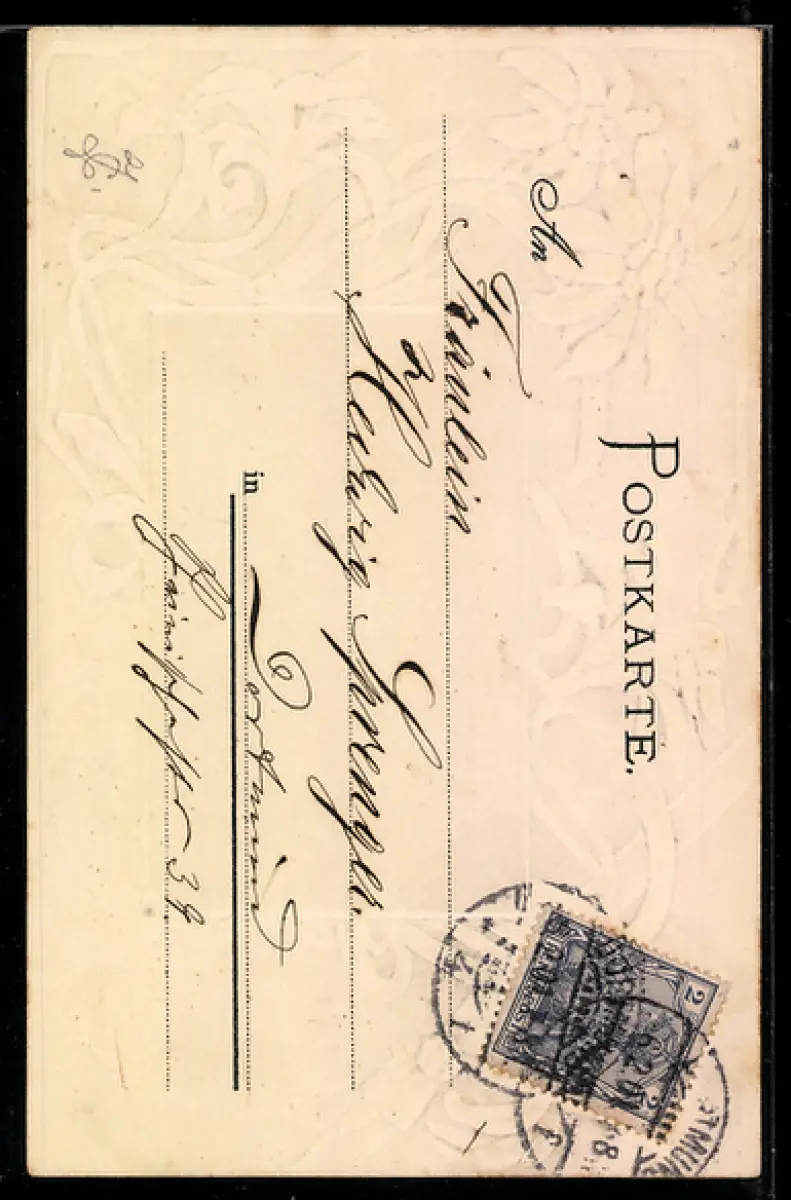 POSTKARTE.
An
Fräulein
Hedwig Sprenger
in Dortmund
39
2 2